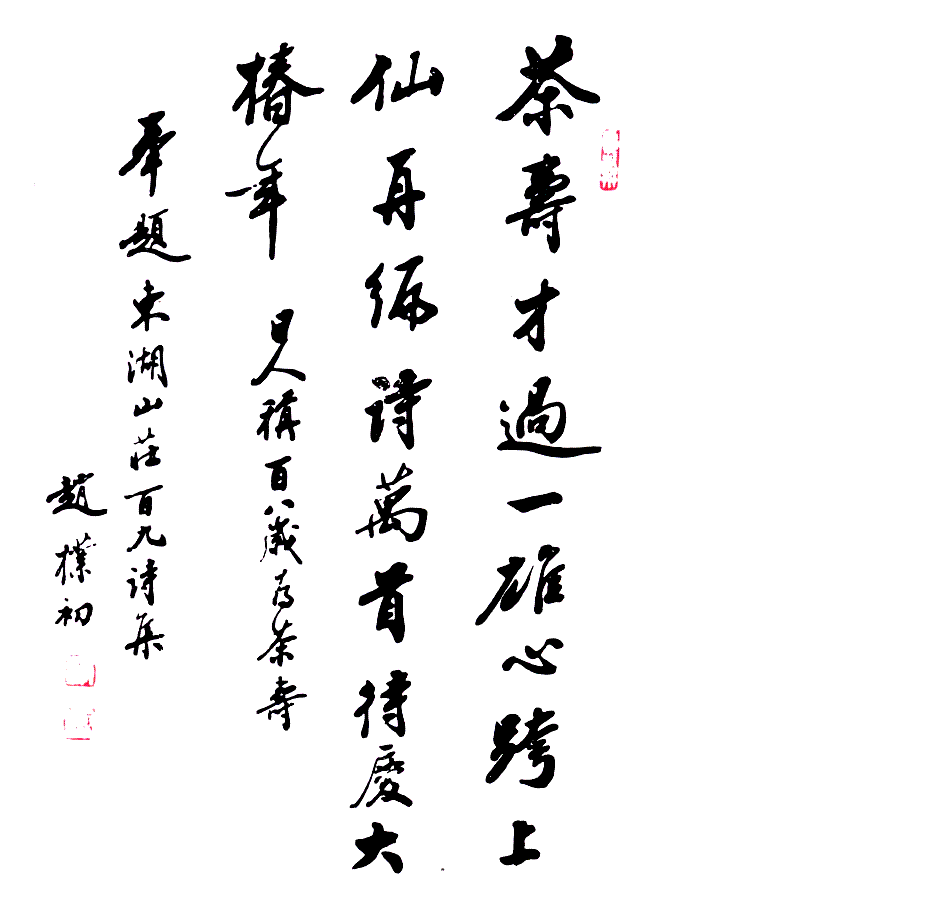 茶壽才過一雄心跨上
仙再编诗萬首待慶大
椿年 日人稱百八歲为茶壽
奉題東湖山莊百九诗集
趙樸初